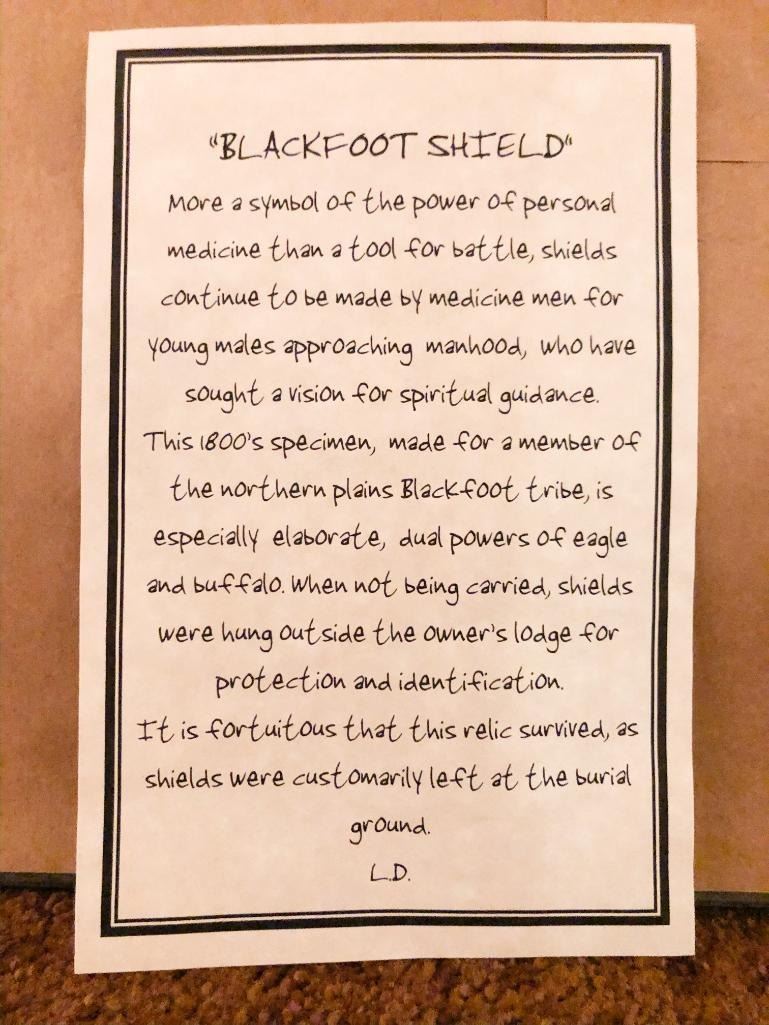 "BLACKFOOT SHIELD"
More a symbol of the power of personal
medicine than a tool for battle, shields
continue to be made by medicine men for
young males approaching manhood, who have
sought a vision for spiritual guidance.
This 1800's specimen, made for a member of
the northern plains Blackfoot tribe, is
especially elaborate, dual powers of eagle
and buffalo. When not being carried, shields
were hung outside the owner's lodge for
protection and identification.
It is fortuitous that this relic survived, as
shields were customarily left at the burial
ground.
L.D.